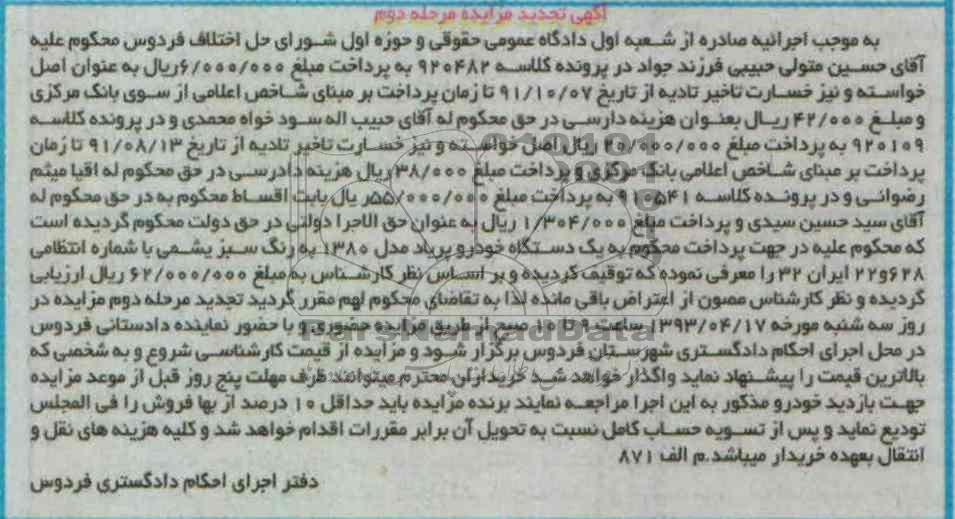 آگهی تجدید مزایده مرحله دوم
به موجب اجرائیه صادره از شعبه اول دادگاه عمومی حقوقی و حوزه اول شورای حل اختلاف فردوس محکوم علیه
آقای حسین متولی حبیبی فرزند جواد در پرونده کلاسه ۹۲۰۴۸۲ به پرداخت مبلغ ۶/۰۰۰/۰۰۰ریال به عنوان اصل
خواسته و نیز خسارت تاخیر تادیه از تاریخ ۹۱/۱۰/۰۷ تا زمان پرداخت بر مبنای شاخص اعلامی از سوی بانک مرکزی
و مبلغ ۴۲/۰۰۰ ریال بعنوان هزینه دارسی در حق محکوم له آقای حبیب اله سود خواه محمدی و در پرونده کلاسه
۹۲۰۱۰۹ به پرداخت مبلغ ۲۰/۰۰۰/۰۰۰ ریال اصل خواسته و نیز خسارت تاخیر تادیه از تاریخ ۹۱/۰۸/۱۳ تا زمان
پرداخت بر مبنای شاخص اعلامی بانک مرکزی و پرداخت مبلغ ۳۸/۰۰۰ریال هزینه دادرسی در حق محکوم له اقیا میثم
رضوانی و در پرونده کلاسه ۹۱۰۵۴۱ به پرداخت مبلغ ۵۵/۰۰۰/۰۰۰ر یال بابت اقساط محکوم به در حق محکوم له
آقای سید حسین سیدی و پرداخت مبلغ ۱/۳۰۴/۰۰۰ ریال به عنوان حق الاجرا دولتی در حق دولت محکوم گردیده است
که محکوم علیه در جهت پرداخت محکوم به یک دستگاه خودرو پراید مدل ۱۳۸۰ به رنگ سبز یشمی با شماره انتظامی
۶۲۸و۲۲ ایران ۳۲ را معرفی نموده که توقیف گردیده و بر اساس نظر کارشناس به مبلغ ۶۲/۰۰۰/۰۰۰ ریال ارزیابی
گردیده و نظر کارشناس مصون از اعتراض باقی مانده لذا به تقاضای محکوم لهم مقرر گردید تجدید مرحله دوم مزایده در
روز سه شنبه مورخه ۱۳۹۳/۰۴/۱۷ ساعت ۹ تا ۱۰ صبح از طریق مزایده حضوری و با حضور نماینده دادستانی فردوس
در محل اجرای احکام دادگستری شهرستان فردوس برگزار شود و مزایده از قیمت کارشناسی شروع و به شخصی که
بالاترین قیمت را پیشنهاد نماید واگذار خواهد شد خریداران محترم میتوانند ظرف مهلت پنج روز قبل از موعد مزایده
جهت بازدید خودرو مذکور به این اجرا مراجعه نمایند برنده مزایده باید حداقل ۱۰ درصد از بها فروش را فی المجلس
تودیع نماید و پس از تسویه حساب کامل نسبت به تحویل آن برابر مقررات اقدام خواهد شد و کلیه هزینه های نقل و
انتقال بعهده خریدار میباشد.م الف ۸۷۱
دفتر اجرای احکام دادگستری فردوس
ParsNamadData